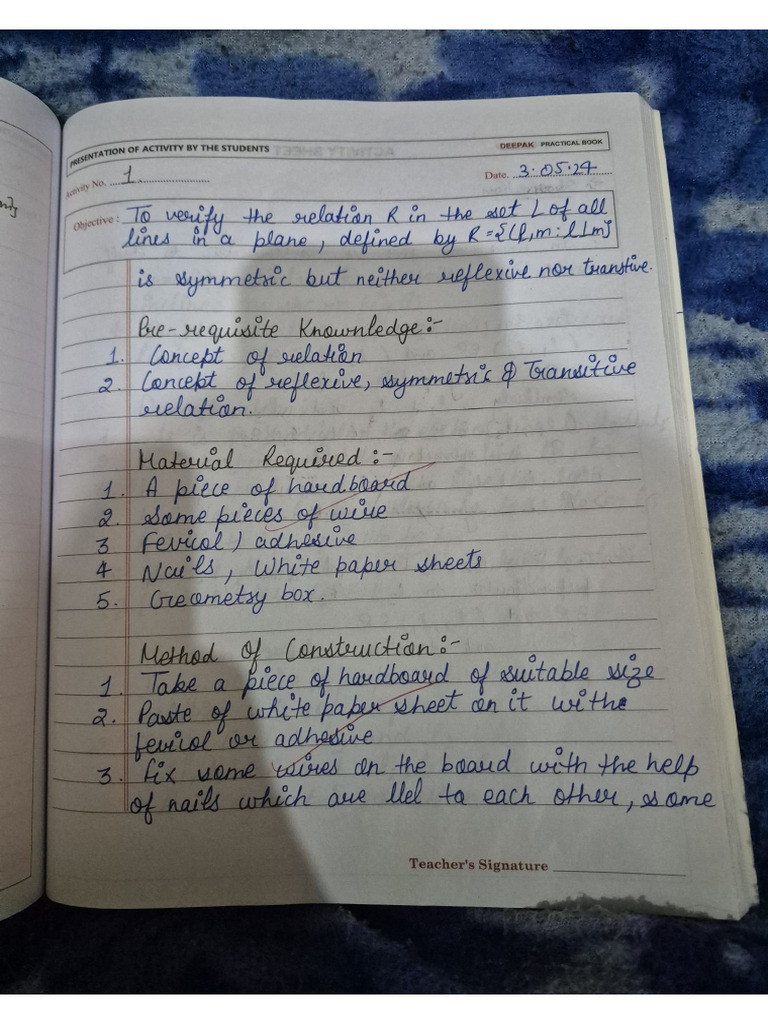 PRESENTATION OF ACTIVITY BY THE STUDENTS
DEEPAK PRACTICAL BOOK
Activity No. ....1....
Date. 3.05.24
Objective : To verify the relation R in the set L of all
lines in a plane, defined by R = {(l,m : l⊥m}
is symmetric but neither reflexive nor transtive.
Pre-requisite Knownledge:-
1. Concept of relation
2. Concept of reflexive, symmetric & Transitive
relation.
Material Required :-
1. A piece of hardboard
2. Some pieces of wire
3 Fevicol ) adhesive
4 Nails, White paper sheets
5. Geometry box.
Method of Construction:-
1. Take a piece of hardboard of suitable size
2. Paste of white paper sheet on it with
fevicol or adhesive
3. fix some wires on the board with the help
of nails which are llel to each other, some
Teacher's Signature